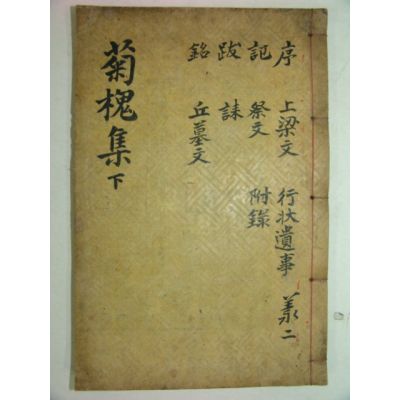 菊槐集下
序 上梁文 行狀遺事
記 祭文 附錄
跋 誄
銘 丘墓文
二